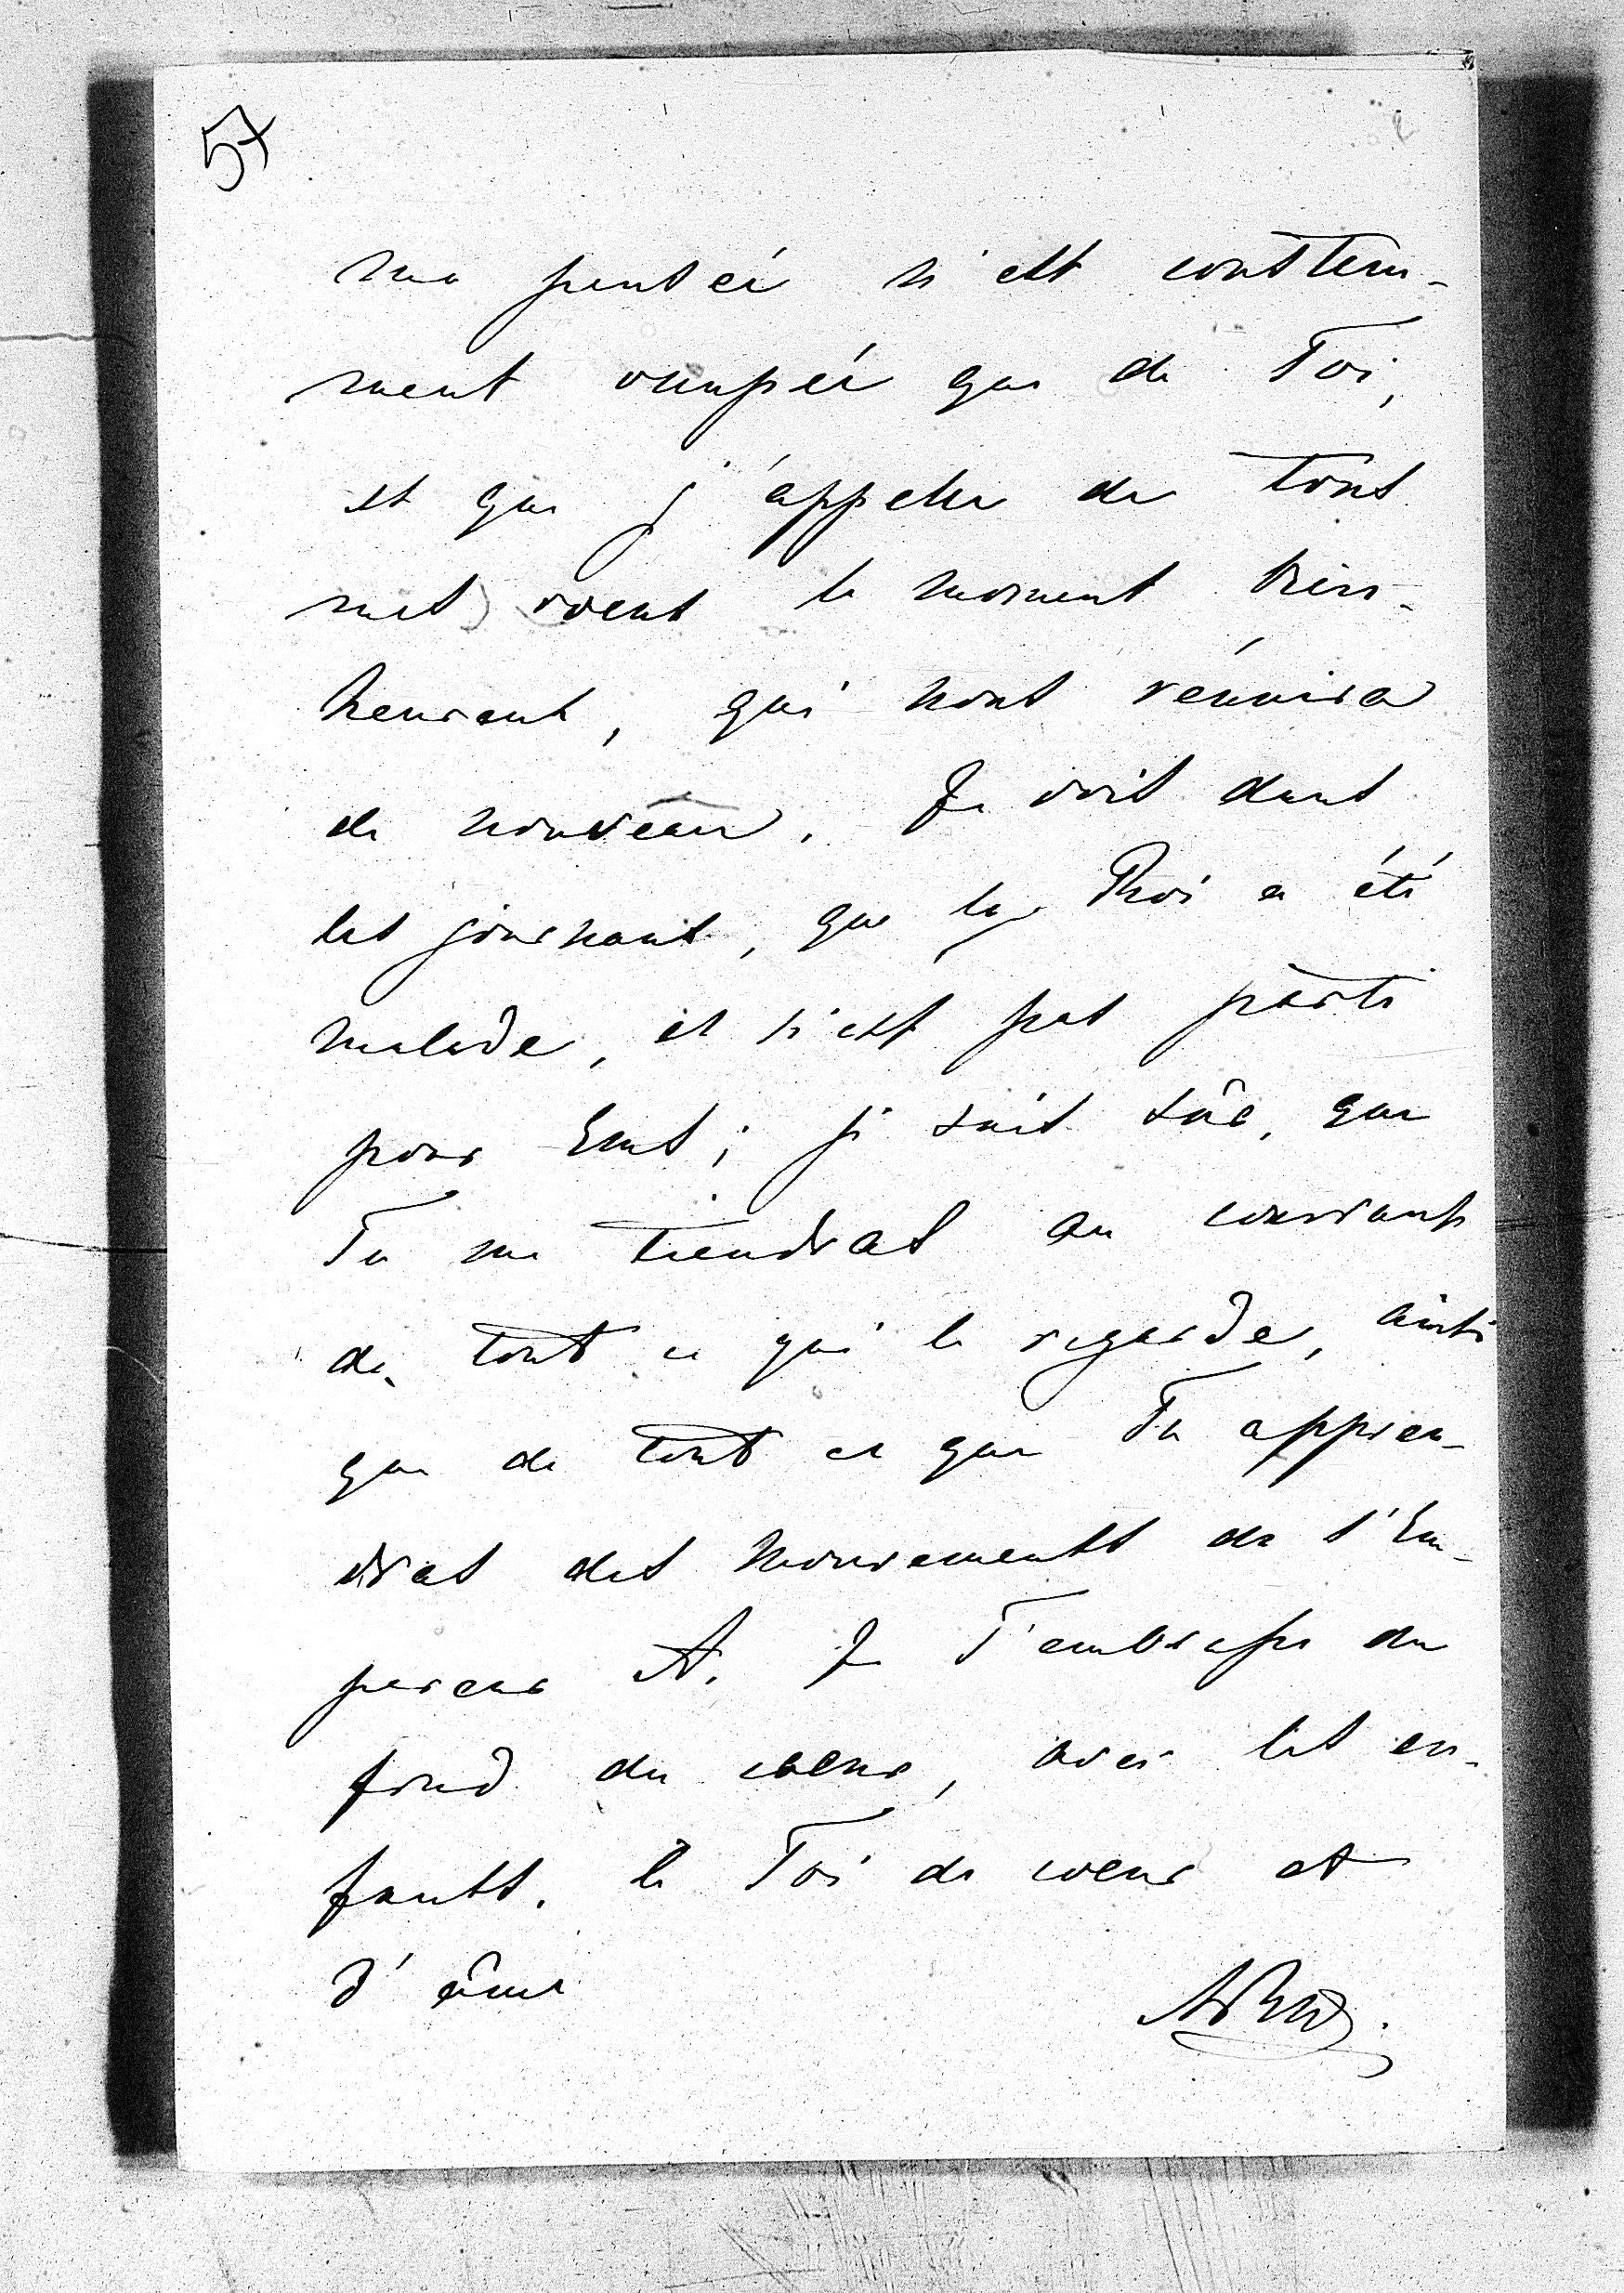 57
ma pensée n'est constem-
ment occupée que de Toi,
et que j'appelle de tous
mes voeux le moment bien-
heureux, qui nous réunira
de nouveau. Je vois dans
les journaux, que le Roi a été
malade, et n'est pas parti
pour Ems; je suis sûr, que
Tu me tiendras au courant
de tout ce qui le regarde, ainsi
que de tout ce que Tu appren-
dras des mouvements de l'Em-
pereur A. Je T'embrasse du
fond du coeur, avec les en-
fants. le Toi de coeur et
d'âme